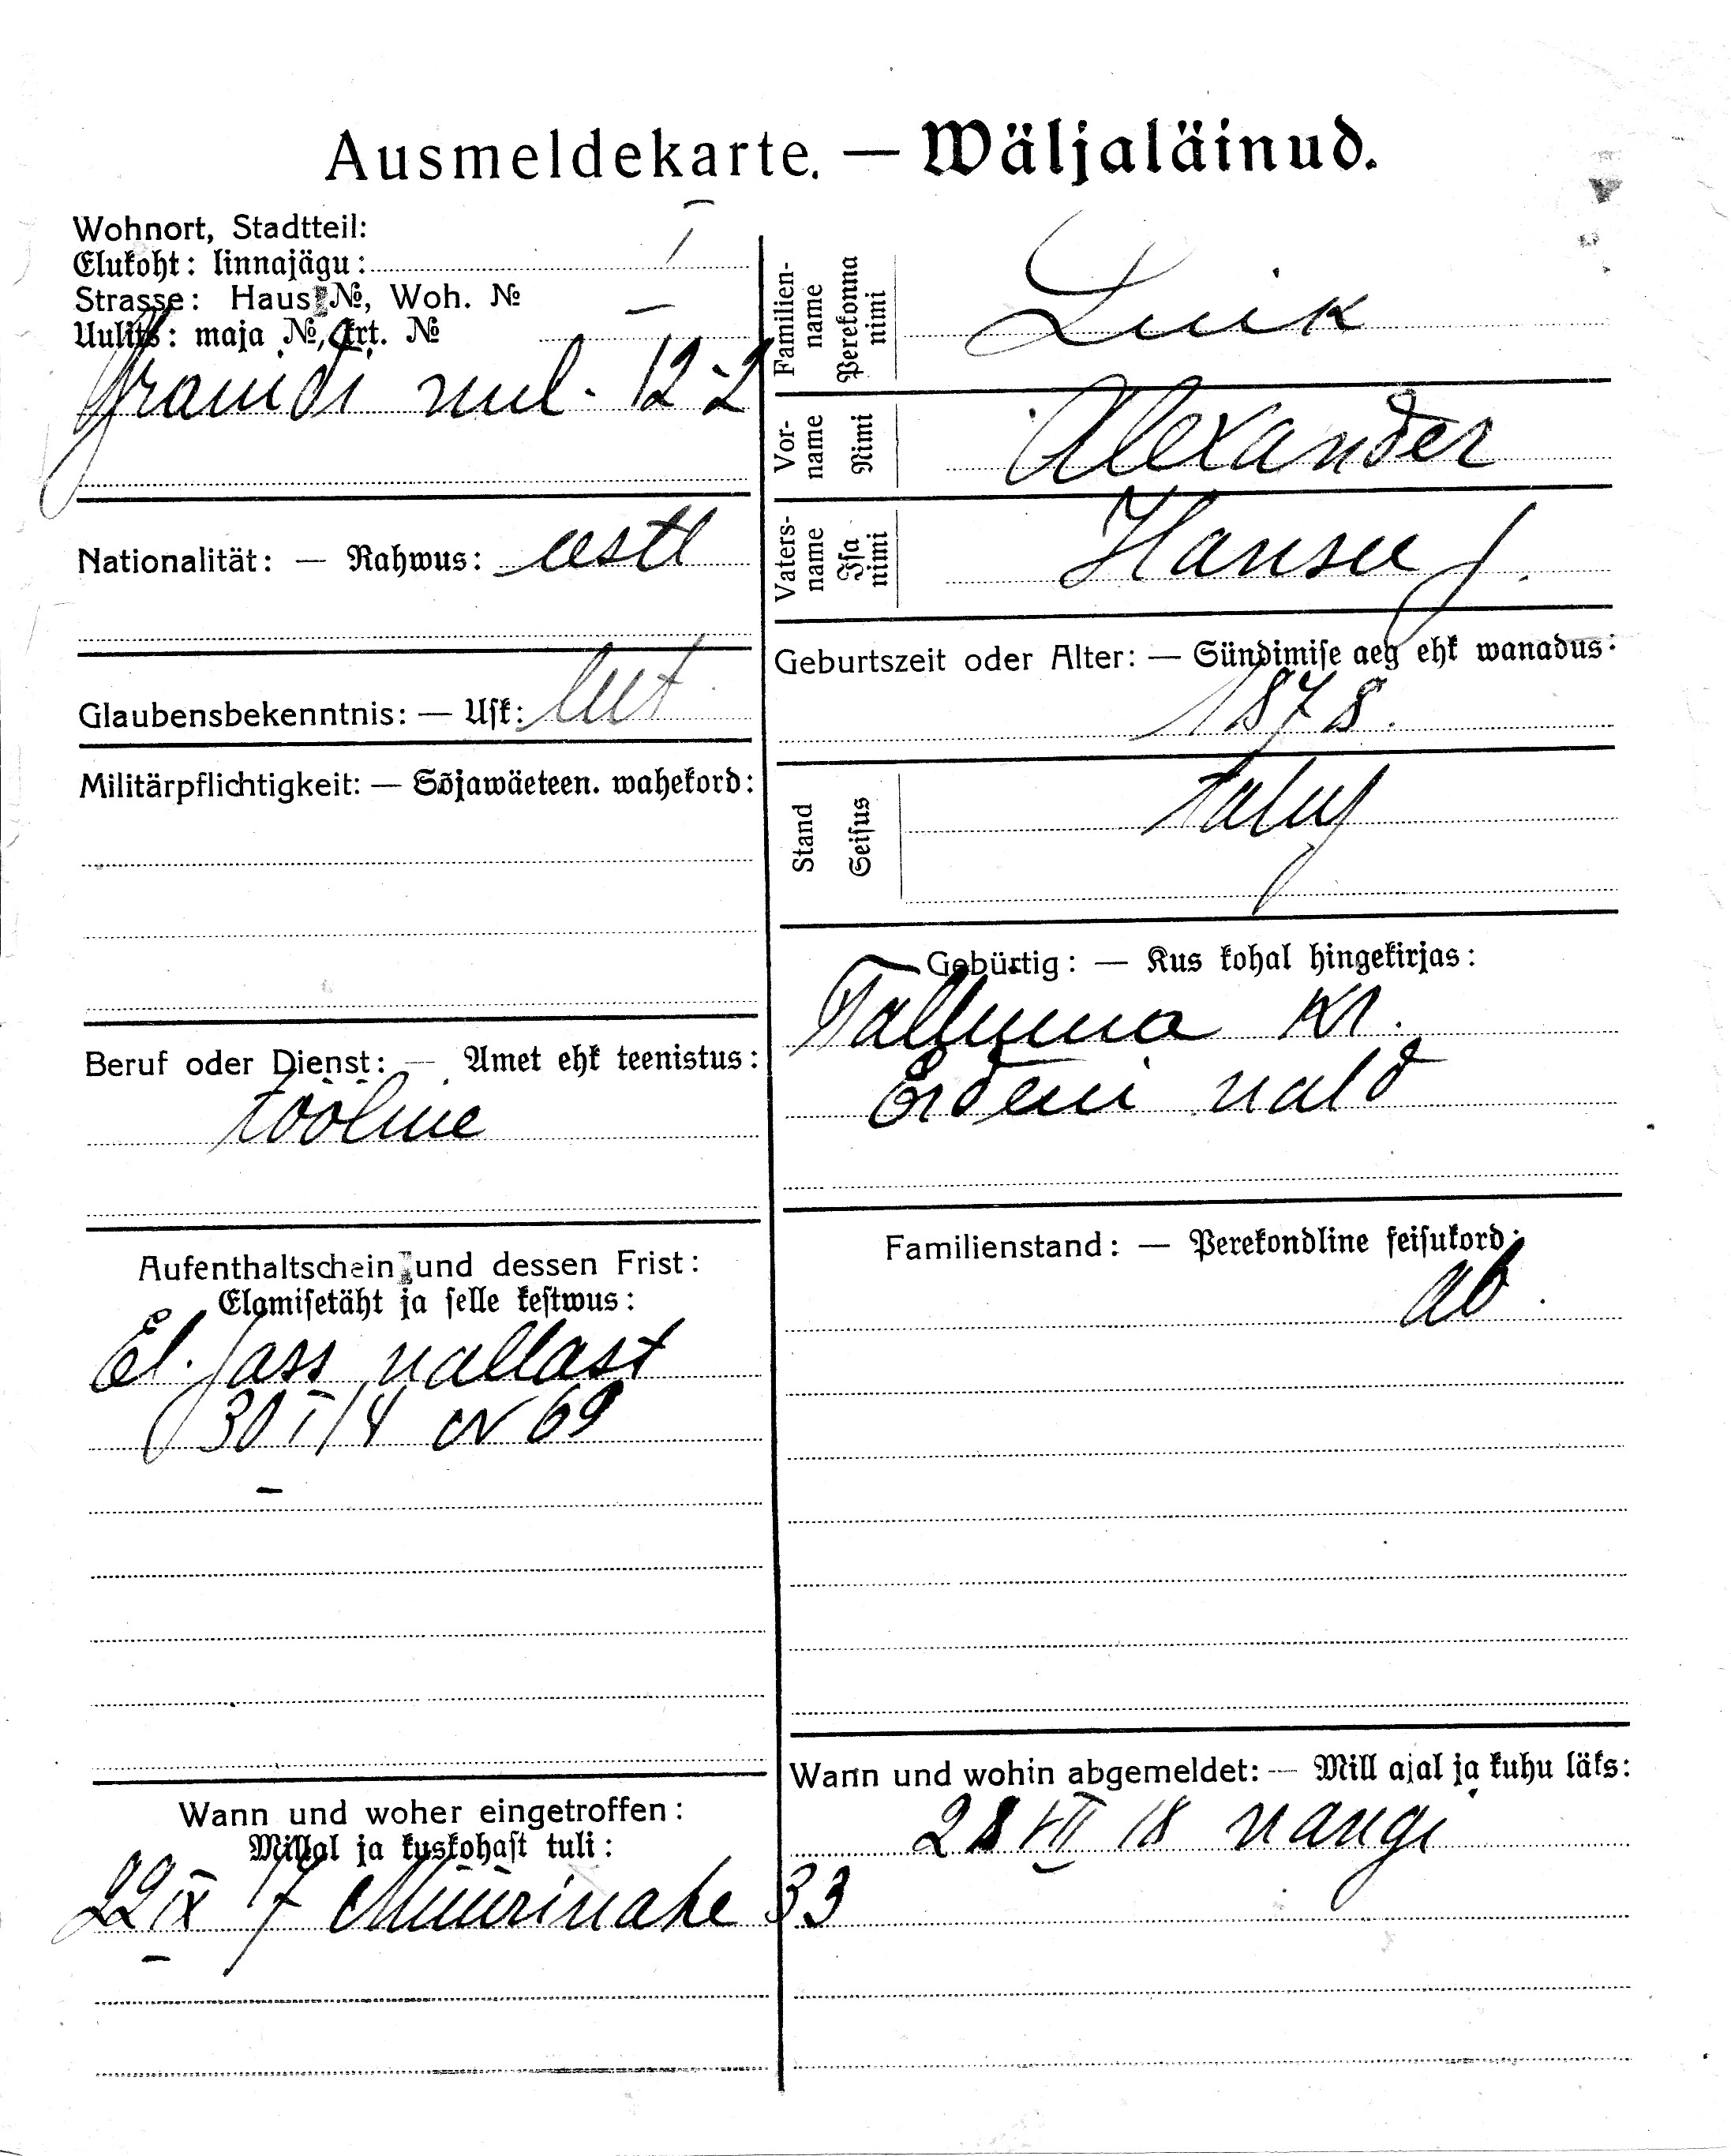 Ausmeldekarte. — Wäljaläinud.
Wohnort, Stadtteil:
Elukoht: linnajagu: I
Strasse: Haus №, Woh. №
Uulits: maja №, krt. №
uul. 12-2
Nationalität: — Rahwus: eestl
Glaubensbekenntnis: — Usk: lut
Militärpflichtigkeit: — Sõjawäeteen. wahekord:
Beruf oder Dienst: — Amet ehk teenistus:
tööline
Aufenthaltschein und dessen Frist:
Elamisetäht ja selle kestwus:
El. pass vallast
30 I 18 N 69
Wann und woher eingetroffen:
Millal ja kuskohast tuli:
22 IX 17 Müürivahe 33
Familien-name Perekonna nimi Luik
Vor-name Nimi Alexander
Vaters-name Isa nimi Hansu p.
Geburtszeit oder Alter: — Sündimise aeg ehk wanadus:
1878.
Stand Seisus talup
Gebürtig: — Kus kohal hingekirjas:
Tallinna Kr.
vald
Familienstand: — Perekondline seisukord:
ab.
Wann und wohin abgemeldet: — Mill ajal ja kuhu läks:
28 VII 18 vangi